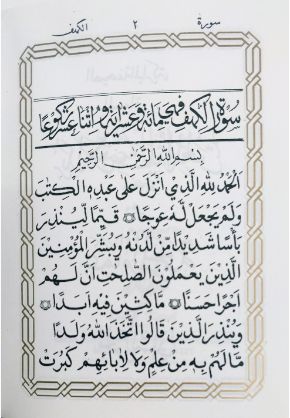 سورة ٢ الكهف
سورة الكهف وهي مائة وعشر آية واثنتا عشر ركوعا
بسم الله الرحمن الرحيم
اَلْحَمْدُ لِلّٰهِ الَّذِيْ اَنْزَلَ عَلٰى عَبْدِهِ الْكِتٰبَ
وَلَمْ يَجْعَلْ لَّهٗ عِوَجًا ۝ قَيِّمًا لِّيُنْذِرَ
بَاْسًا شَدِيْدًا مِّنْ لَّدُنْهُ وَيُبَشِّرَ الْمُؤْمِنِيْنَ
الَّذِيْنَ يَعْمَلُوْنَ الصّٰلِحٰتِ اَنَّ لَهُمْ
اَجْرًا حَسَنًا ۝ مَّاكِثِيْنَ فِيْهِ اَبَدًا ۝
وَّيُنْذِرَ الَّذِيْنَ قَالُوا اتَّخَذَ اللّٰهُ وَلَدًا
مَا لَهُمْ بِهٖ مِنْ عِلْمٍ وَّلَا لِاٰبَائِهِمْ كَبُرَتْ